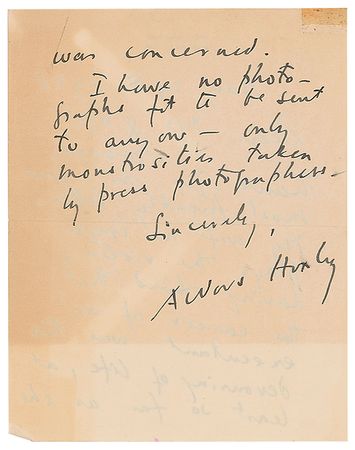 was concerned.
I have no photo-
graphs fit to be sent
to anyone — only
monstrosities taken
by press photographers —
Sincerely,
Aldous Huxley